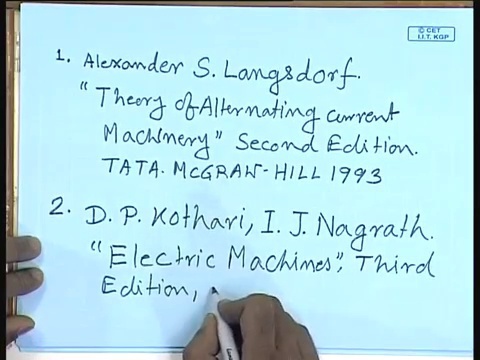 © CET
I.I.T. KGP
1. Alexander S. Langsdorf.
"Theory of Alternating current
Machinery" Second Edition.
TATA. McGRAW-HILL 1993
2. D. P. Kothari, I. J. Nagrath.
"Electric Machines", Third
Edition,